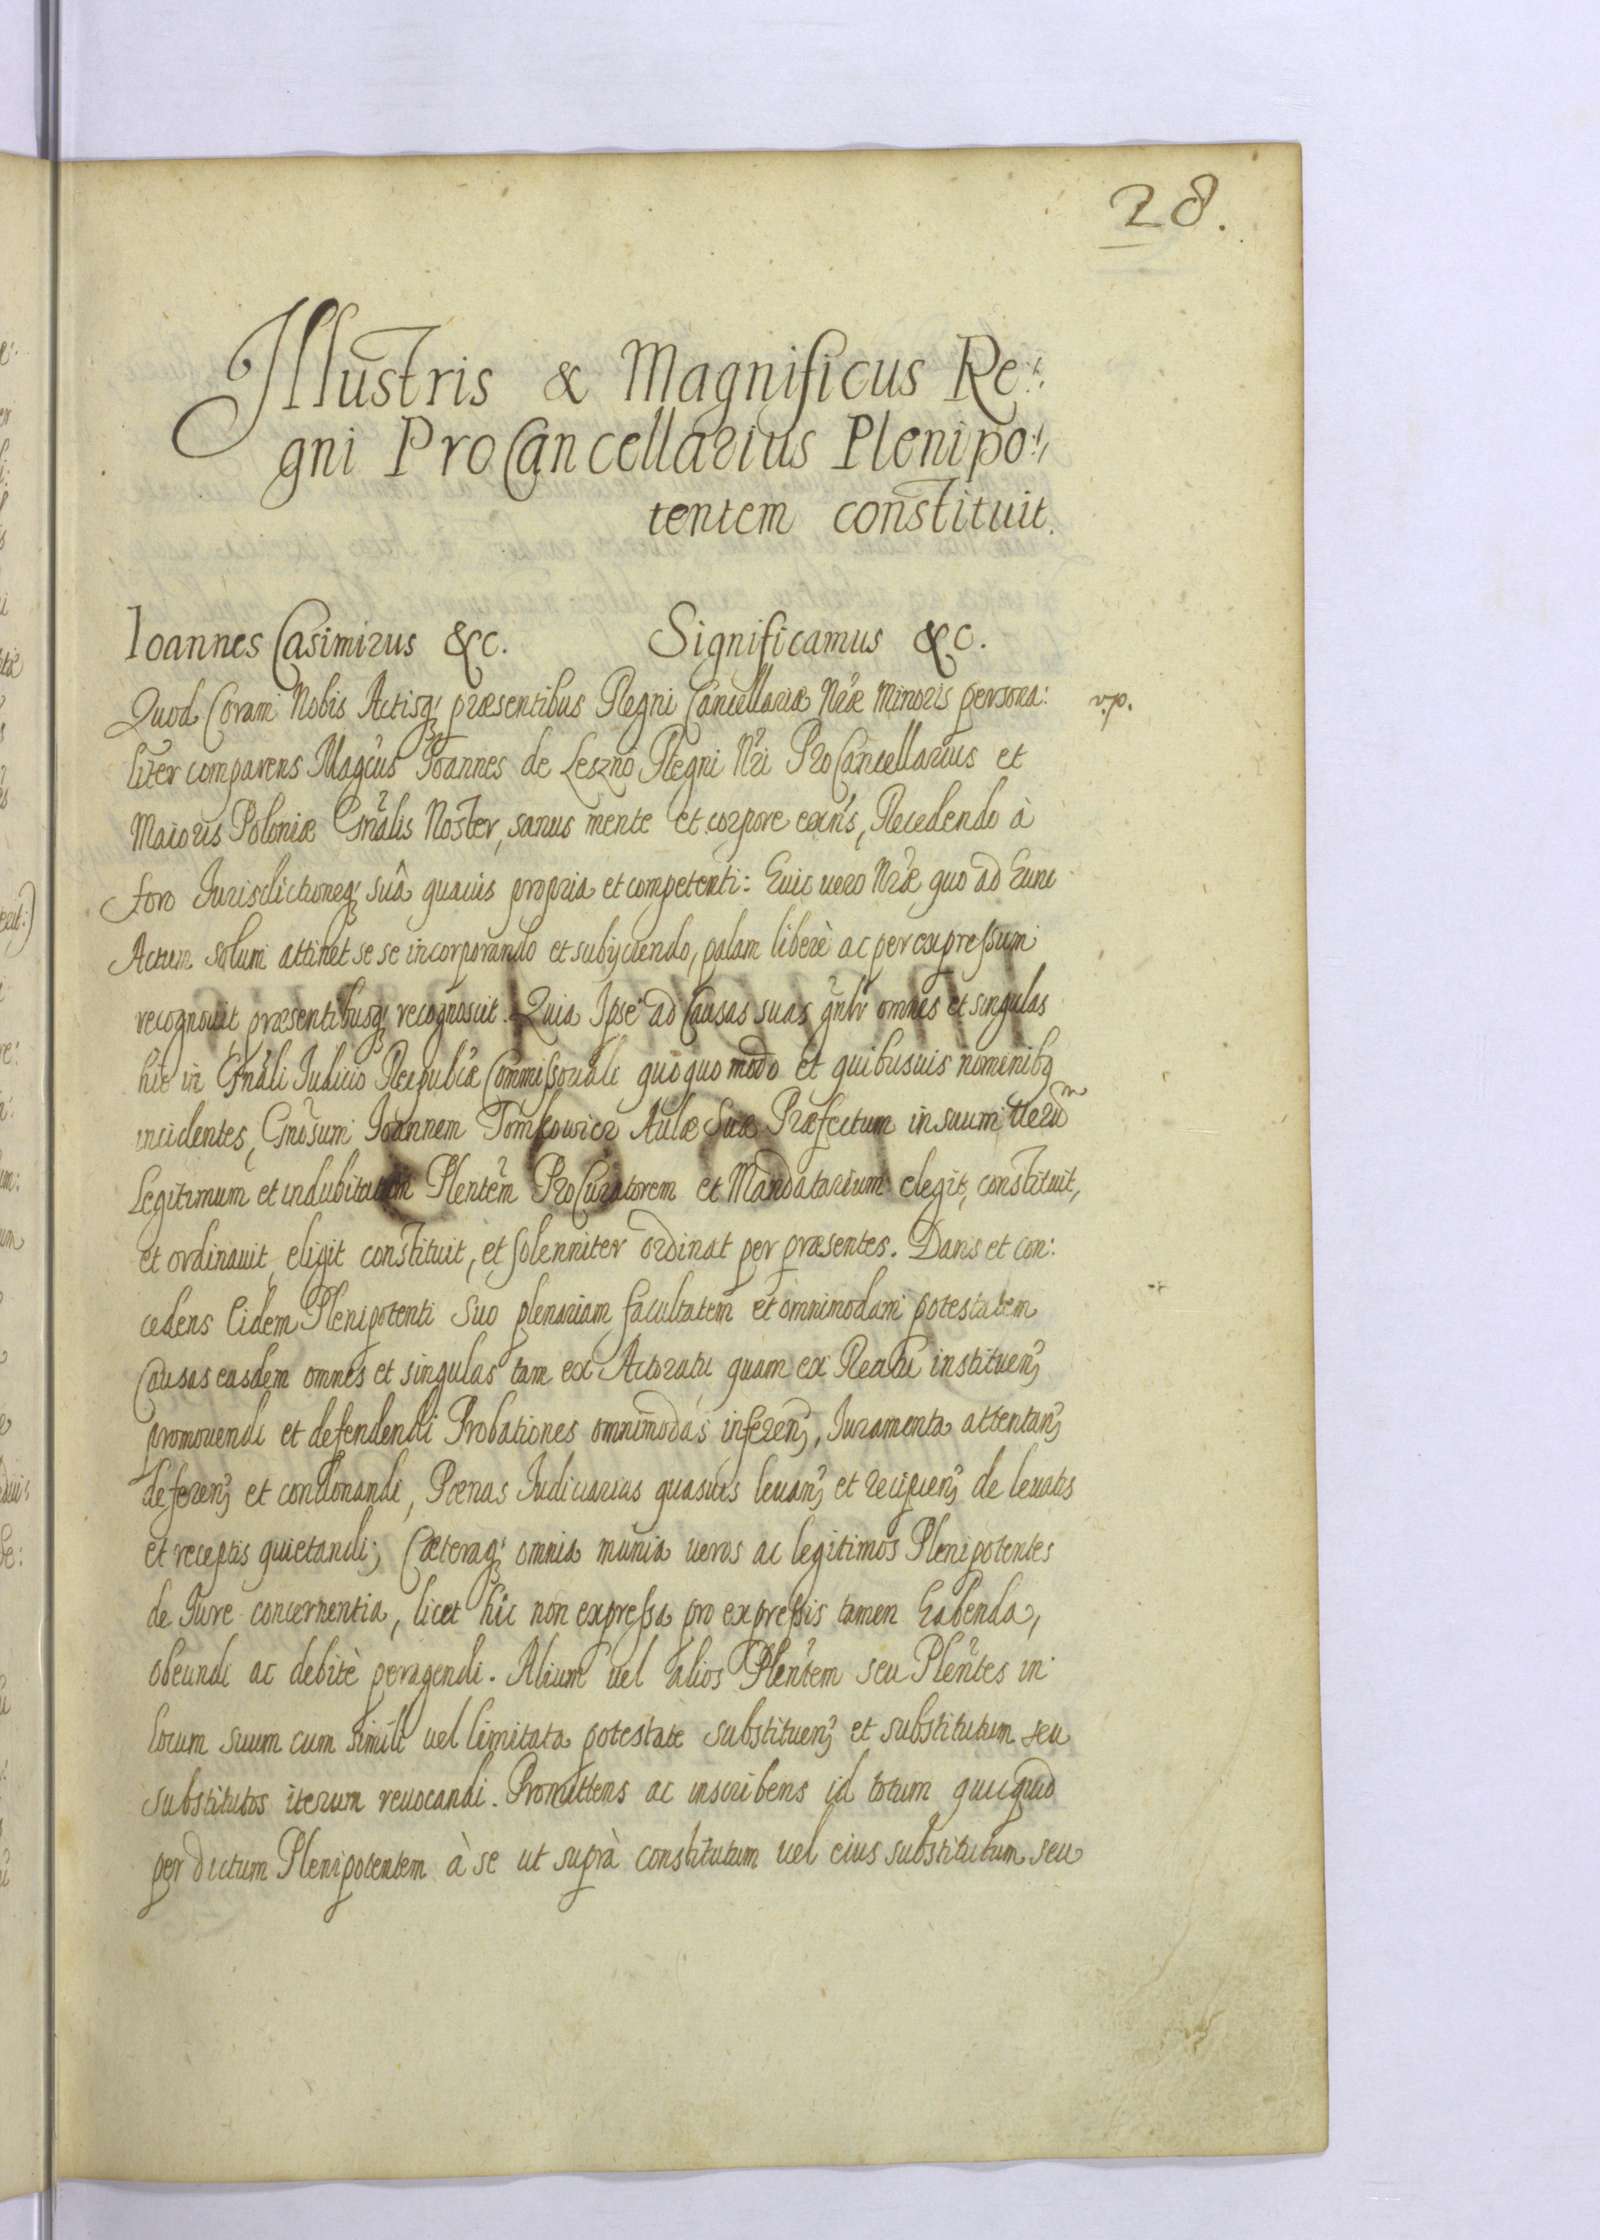 28.
Illustris & Magnificus Re:
gni ProCancellarius Plenipo:
tentem constituit.
Ioannes Casimirus &c. Significamus &c.
Quod Coram Nobis Actisq; præsentibus Regni Cancellariæ Nr̃æ Minoris persona: v.p.
liter comparens Magcus Ioannes de Leszno Regni Nr̃i ProCancellarius et
Maioris Poloniæ Gnãlis Noster, sanus mente et corpore exñs, Recedendo à
foro Iurisdictioneq; suâ quauis propria et competenti: Huic uero Nr̃æ quo ad hunc
Actum solum attinet se se incorporando et subijciendo, palam liberè ac per expressum
recognouit præsentibusq; recognoscit. Quia Ipse ad Causas suas gñlr omnes et singulas
hic in Gnãli Iudicio Reipublæ Commissoriali quoquo modo et quibusuis nominibq
incidentes, Gnõsum Ioannem Tomkowicz Aulæ Suæ Præfectum in suum uerum
Legitimum et indubitatum Plentẽm ProCuratorem et Mandatarium elegit, constituit,
et ordinauit, eligit constituit, et solenniter ordinat per præsentes. Dans et con:
cedens Eidem Plenipotenti Suo plenariam facultatem et omnimodam potestatem
Causas easdem omnes et singulas tam ex Actoratu quam ex Reatu instituen;
promouendi et defendendi Probationes omnimodas inferen;, Iuramenta attentan;
deferen; et condonandi, Poenas Iudiciarias quasuis leuan; et recipien; de leuatis
et receptis quietandi; Cæteraq; omnia munia ueros ac legitimos Plenipotentes
de Iure concernentia, licet hîc non expressa pro expressis tamen habenda,
obeundi ac debitè peragendi. Alium uel alios Plentẽm seu Plentẽs in
locum suum cum simili uel limitata potestate substituen; et substitutum seu
substitutos iterum reuocandi. Promittens ac inscribens id totum quicquid
per dictum Plenipotentem à se ut suprà constitutum uel eius substitutum seu